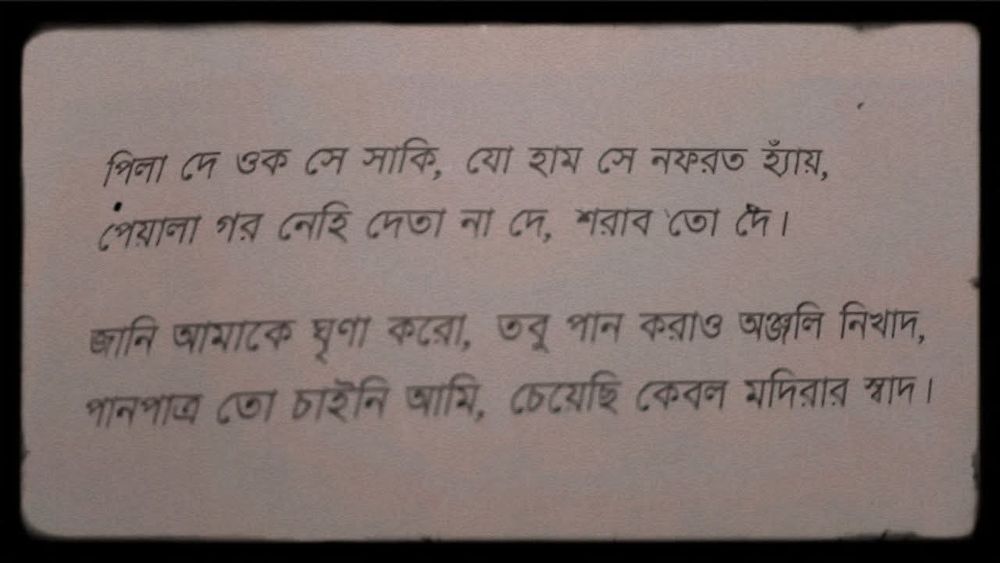 পিলা দে ওক সে সাকি, যো হাম সে নফরত হ্যাঁয়,
পেয়ালা গর নেহি দেতা না দে, শরাব তো দে।
জানি আমাকে ঘৃণা করো, তবু পান করাও অঞ্জলি নিখাদ,
পানপাত্র তো চাইনি আমি, চেয়েছি কেবল মদিরার স্বাদ।